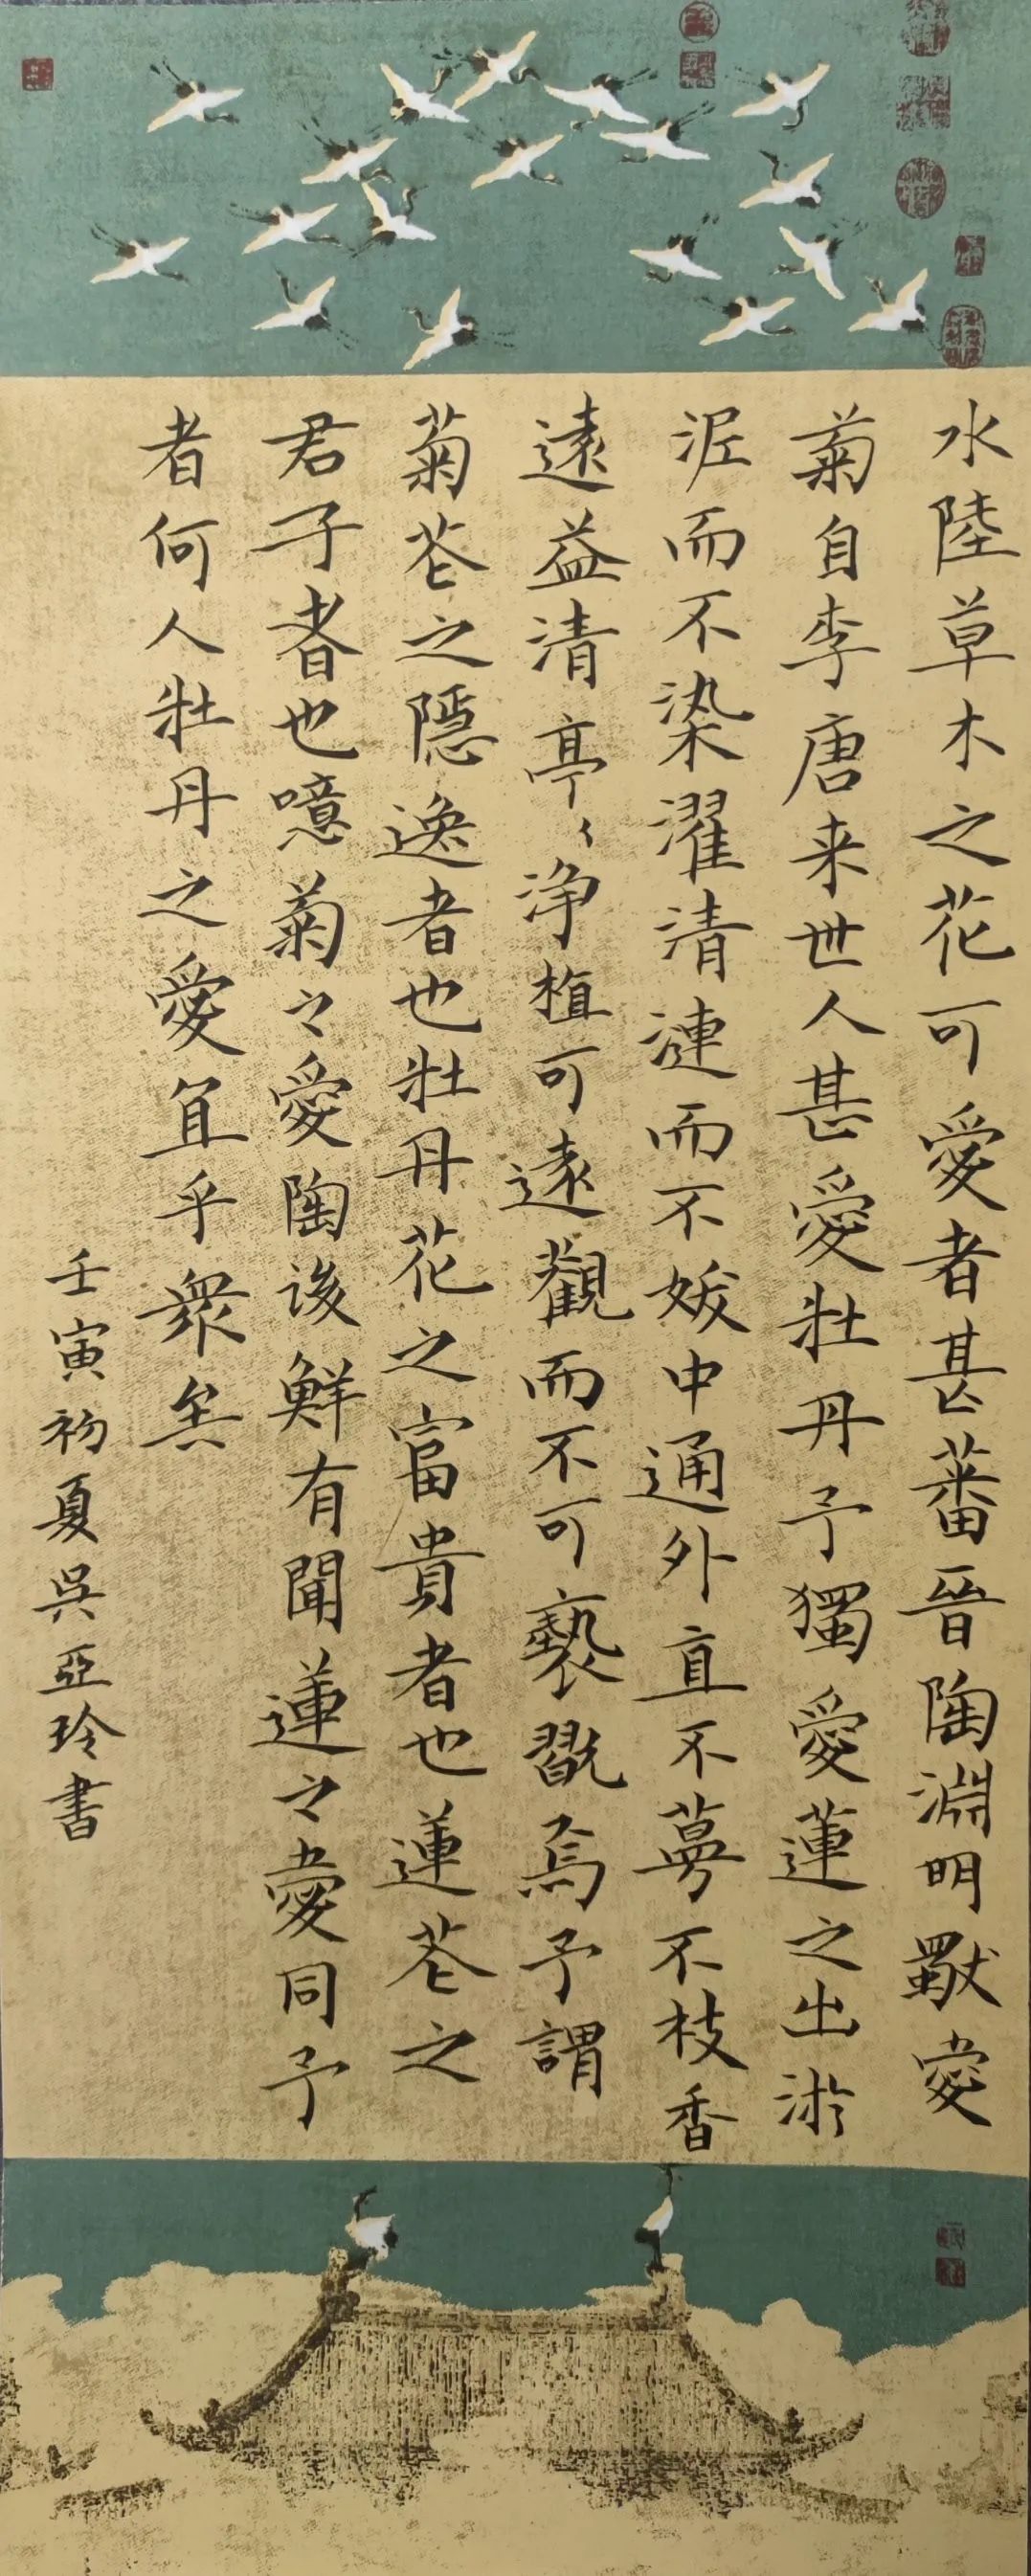 水陸草木之花可愛者甚蕃晉陶淵明獸愛
菊自李唐来世人甚愛牡丹予獨愛蓮之出淤
泥而不染濯清漣而不妖中通外直不蔓不枝香
遠益清亭亭浄植可遠觀而不可褻翫焉予謂
菊花之隱逸者也牡丹花之富貴者也蓮花之
君子者也噫菊之愛陶後鮮有聞蓮之愛同予
者何人牡丹之愛宜乎衆矣
壬寅初夏吳亞玲書